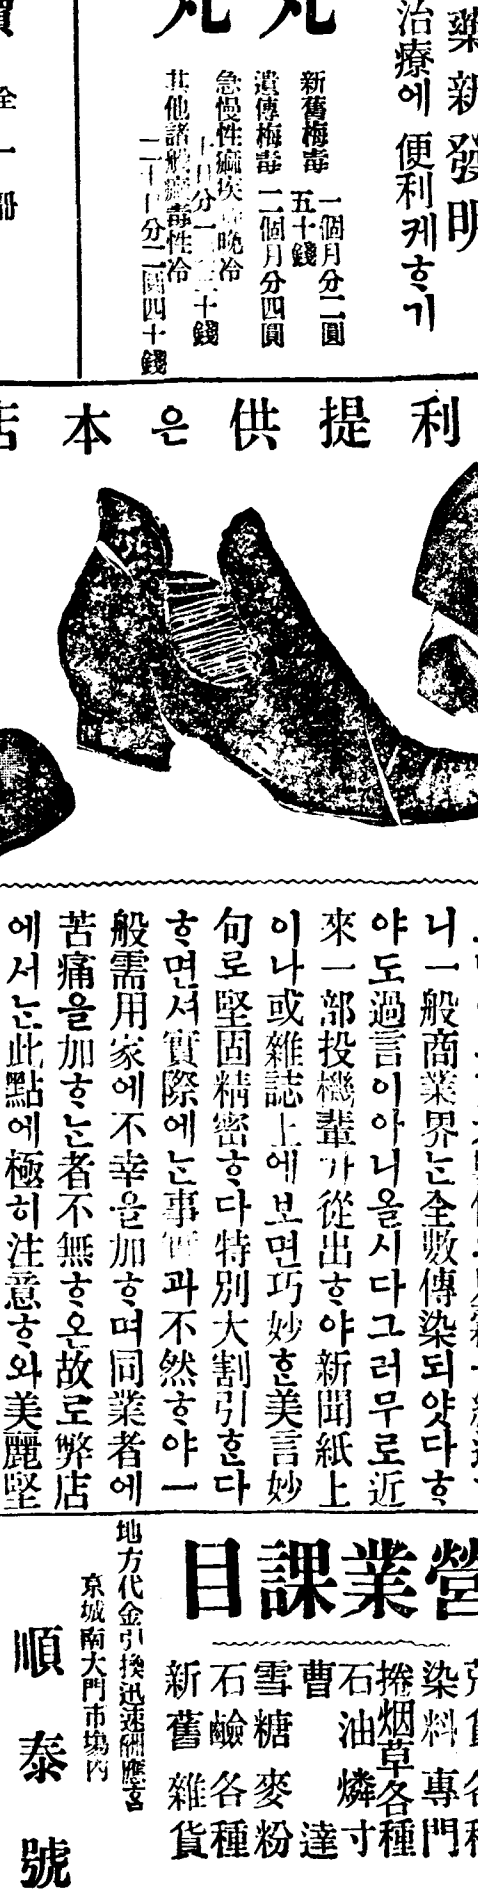 藥新發明
治療에 便利케ᄒᆞ기
新舊梅毒 一個月分二圓五十錢
遺傳梅毒 二個月分四圓
急慢性
十錢
其他諸般 毒性冷
二十日分二圓四十錢
全一冊
利提供은本店
니一般商業界ᄂᆞᆫ全數傳染되얏다ᄒᆞ
야도過言이아니올시다그러무로近
來一部投機輩가從出ᄒᆞ야新聞紙上
이나或雜誌上에보면巧妙ᄒᆞᆫ美言妙
句로堅固精密ᄒᆞ다特別大割引ᄒᆞᆫ다
ᄒᆞ면셔實際에ᄂᆞᆫ事實과不然ᄒᆞ야一
般需用家에不幸을加ᄒᆞ며同業者에
苦痛을加ᄒᆞᄂᆞᆫ者不無ᄒᆞ온故로弊店
에서ᄂᆞᆫ此點에極히注意ᄒᆞ와美麗堅
營業課目
荒貨各種
染料專門
捲烟草各種
石油燐寸
曹達
雪糖麥粉
石鹼各種
新舊雜貨
地方代金引換迅速酬應홈
京城南大門市場內
順泰號